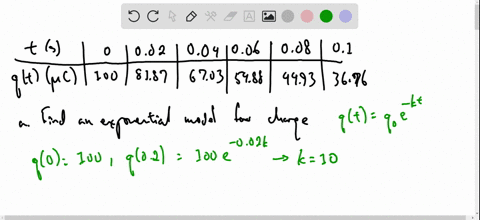 t (s) | 0 | 0.02 | 0.04 | 0.06 | 0.08 | 0.1
q(t) (μC) | 100 | 81.87 | 67.03 | 54.88 | 44.93 | 36.76
a. Find an exponential model for charge q(t) = q₀e^{-kt}
q(0) = 100, q(0.2) = 100 e^{-0.02k} → k = 10